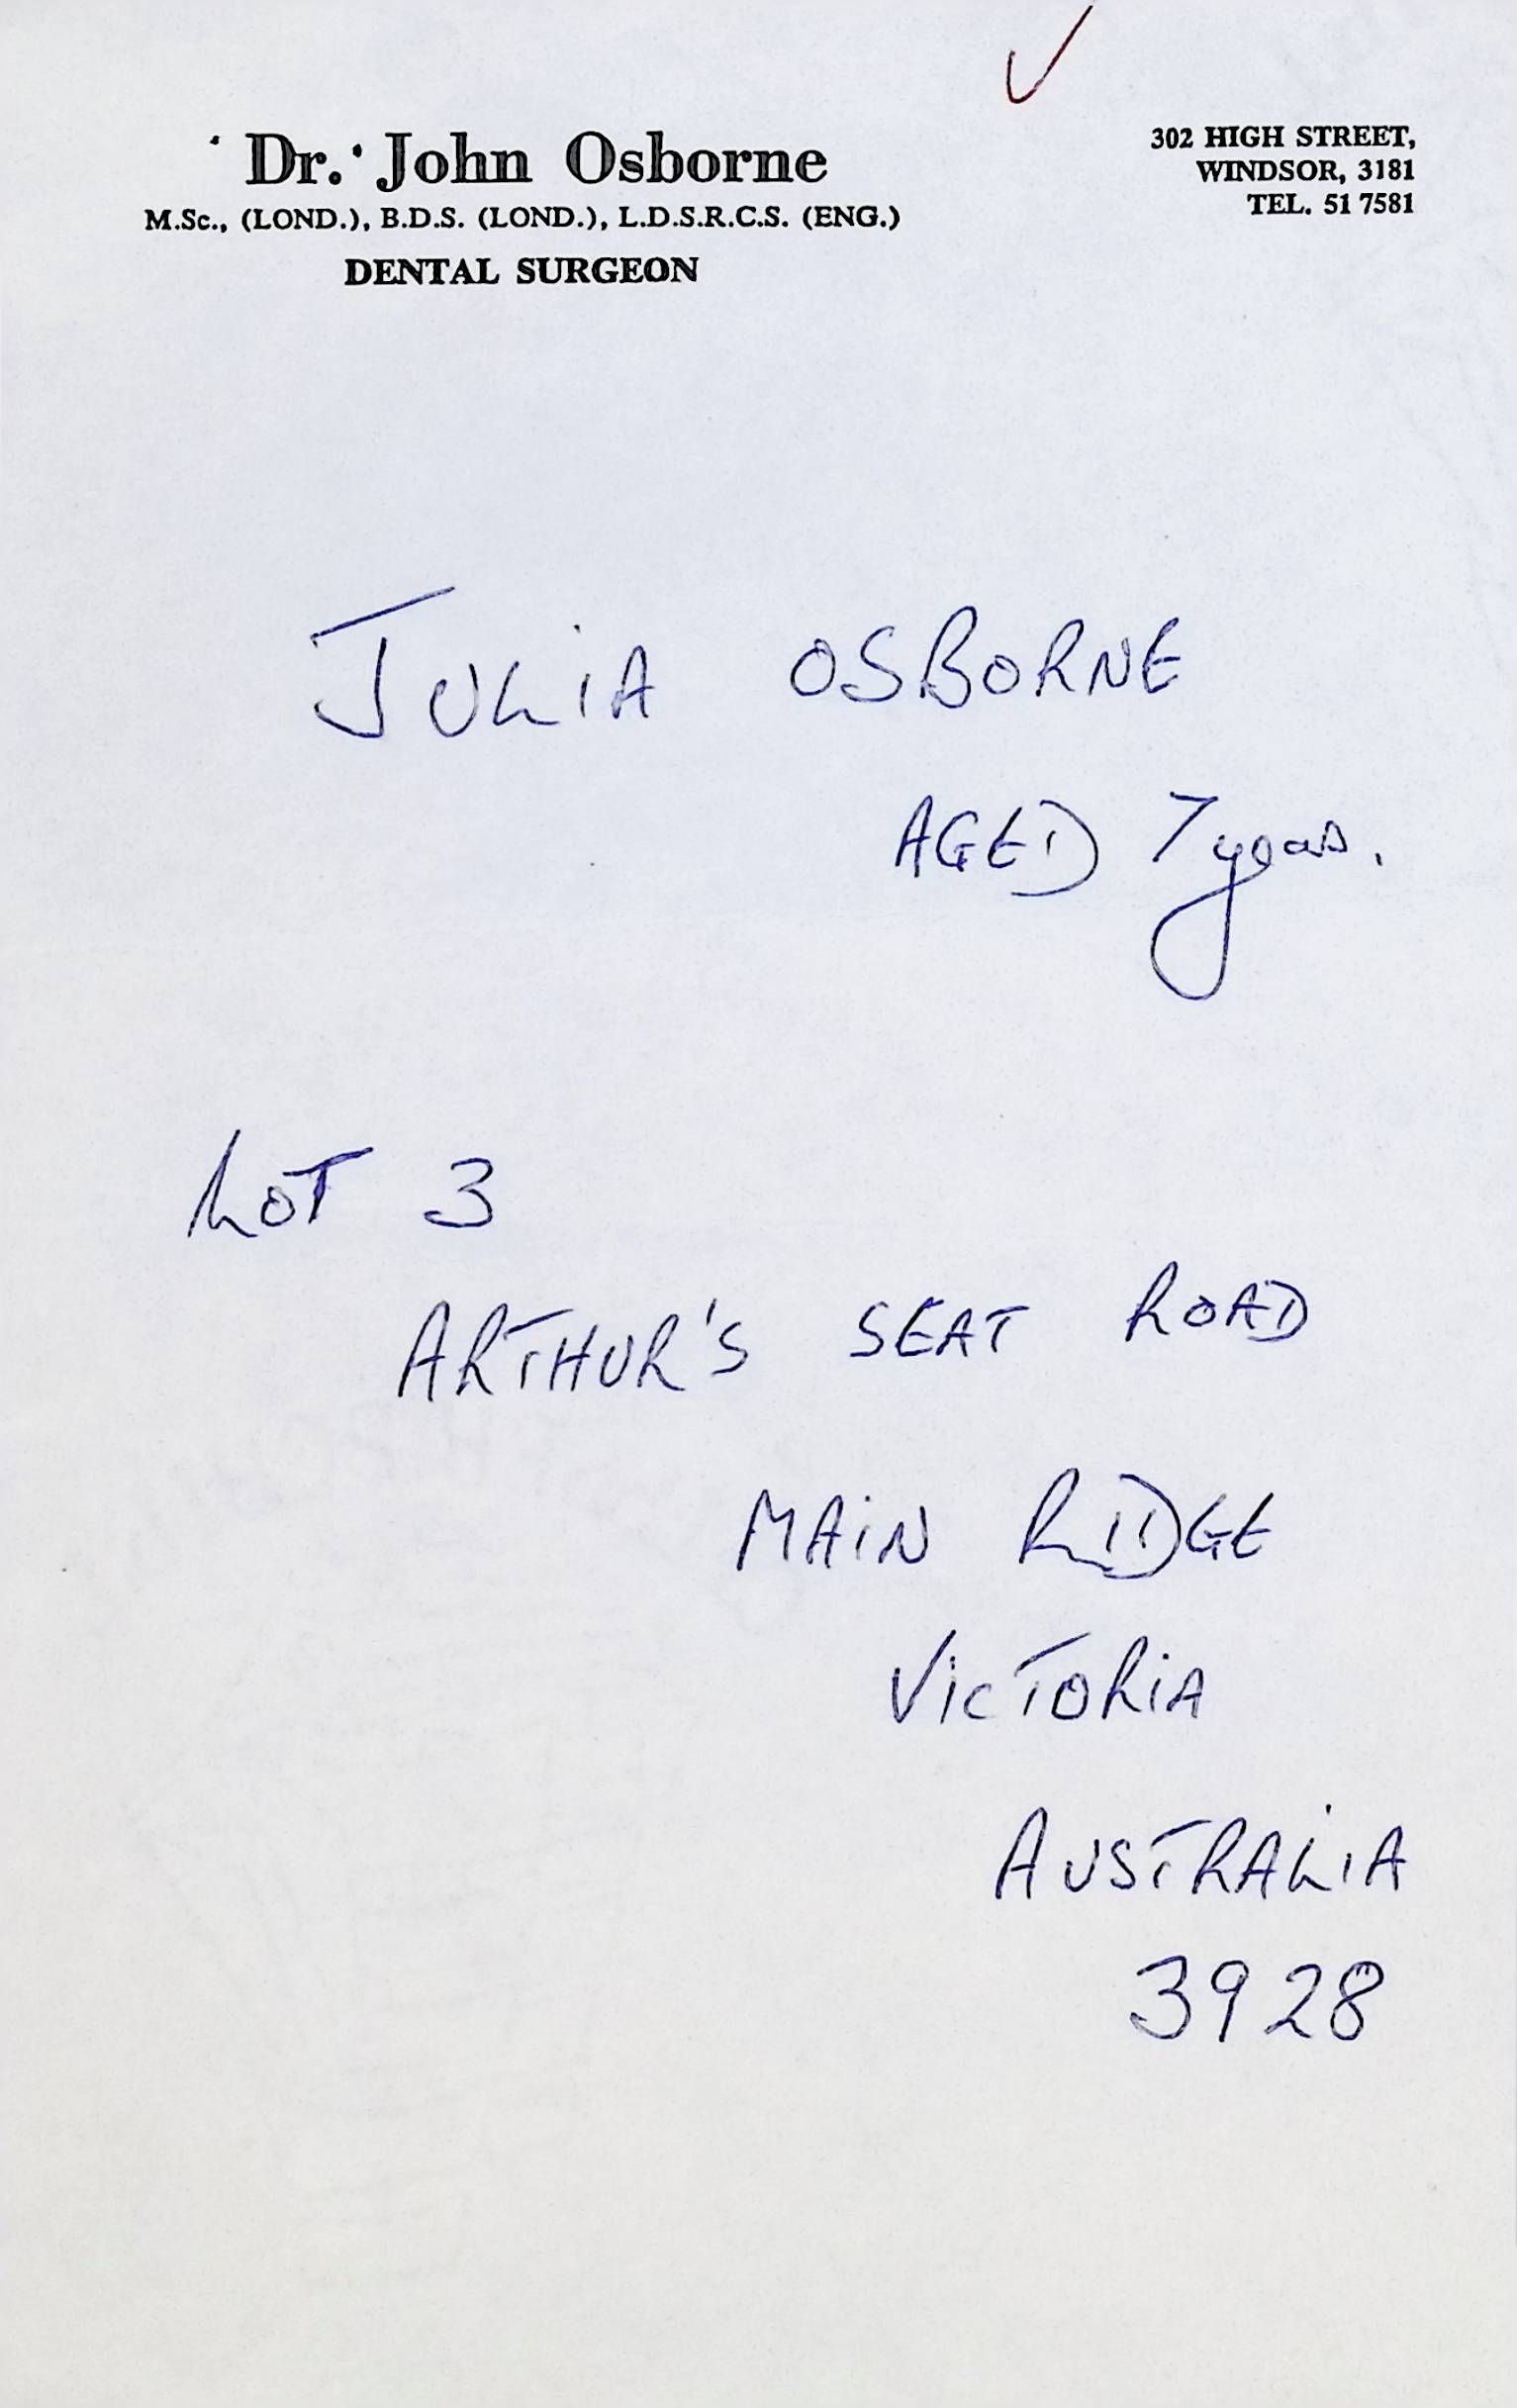 Dr. John Osborne
M.Sc., (LOND.), B.D.S. (LOND.), L.D.S.R.C.S. (ENG.)
DENTAL SURGEON
302 HIGH STREET,
WINDSOR, 3181
TEL. 51 7581
JULIA OSBORNE
AGED 7 years.
LOT 3
ARTHUR'S SEAT ROAD
MAIN RIDGE
VICTORIA
AUSTRALIA
3928